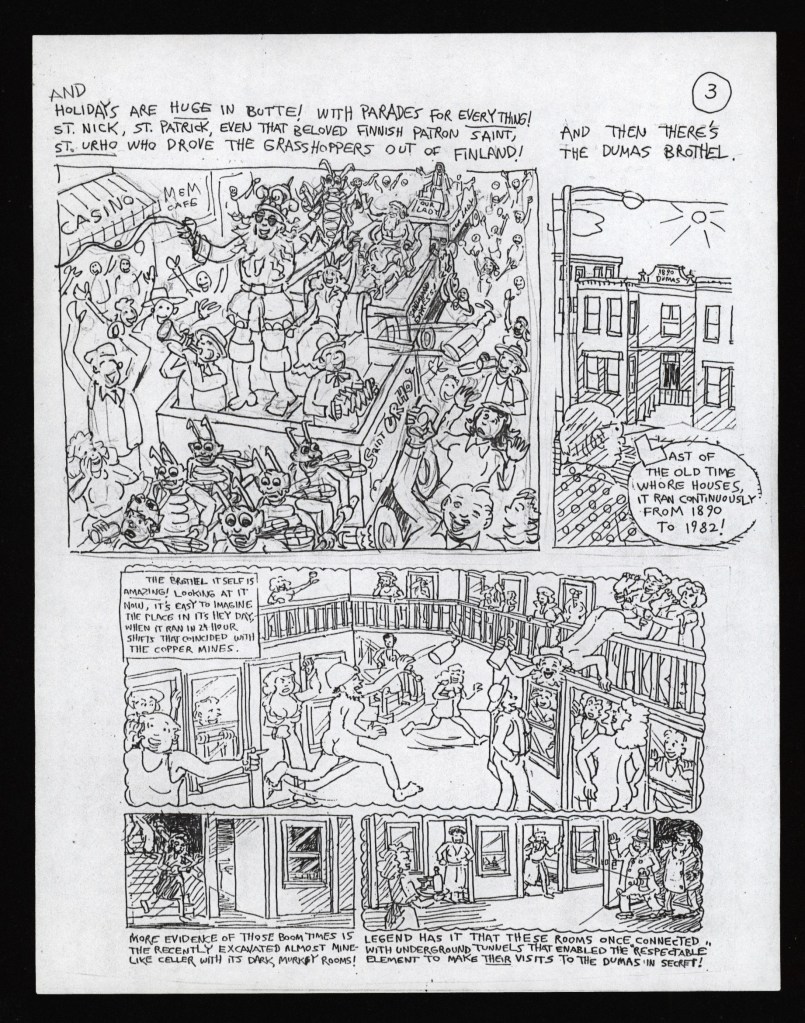 3
AND
HOLIDAYS ARE HUGE IN BUTTE! WITH PARADES FOR EVERYTHING!
ST. NICK, ST. PATRICK, EVEN THAT BELOVED FINNISH PATRON SAINT,
ST. URHO WHO DROVE THE GRASSHOPPERS OUT OF FINLAND!
CASINO
M&M
CAFE
OUR
LADY
Saint URHO
AND THEN THERE'S
THE DUMAS BROTHEL.
1890
DUMAS
LAST OF
THE OLD TIME
WHORE HOUSES,
IT RAN CONTINUOUSLY
FROM 1890
TO 1982!
THE BROTHEL ITSELF IS
AMAZING! LOOKING AT IT
NOW, IT'S EASY TO IMAGINE
THE PLACE IN ITS HEY DAY,
WHEN IT RAN IN 24 HOUR
SHIFTS THAT COINCIDED WITH
THE COPPER MINES.
MORE EVIDENCE OF THOSE BOOM TIMES IS
THE RECENTLY EXCAVATED ALMOST MINE-
LIKE CELLER WITH ITS DARK, MURKEY ROOMS!
LEGEND HAS IT THAT THESE ROOMS ONCE CONNECTED
WITH UNDERGROUND TUNNELS THAT ENABLED THE "RESPECTABLE"
ELEMENT TO MAKE THEIR VISITS TO THE DUMAS IN SECRET!